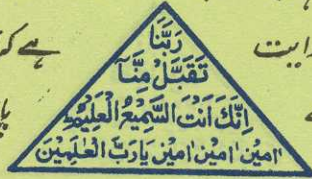 رَبَّنَا
تَقَبَّلْ مِنَّا
اِنَّكَ اَنْتَ السَّمِيْعُ الْعَلِيْمُ
اٰمِيْن اٰمِيْن اٰمِيْن يَارَبَّ الْعٰلَمِيْنَ
ہے کہ